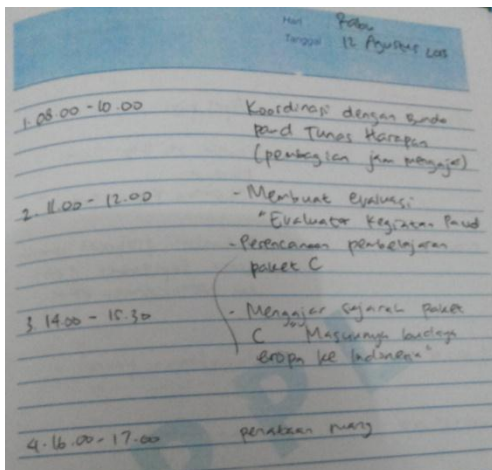 Hari Rabu
Tanggal 12 Agustus
1. 08.00 - 10.00 Koordinasi dengan Bunda
paud Tunas Harapan
(pembagian jam mengajar)
2. 11.00 - 12.00 - Membuat evaluasi
"Evaluator Kegiatan Paud
- Perencanaan pembelajaran
paket C
3. 14.00 - 15.30 - Mengajar sejarah paket
C "Masuknya budaya
eropa ke Indonesia"
4. 16.00 - 17.00 penataan ruang
PPL